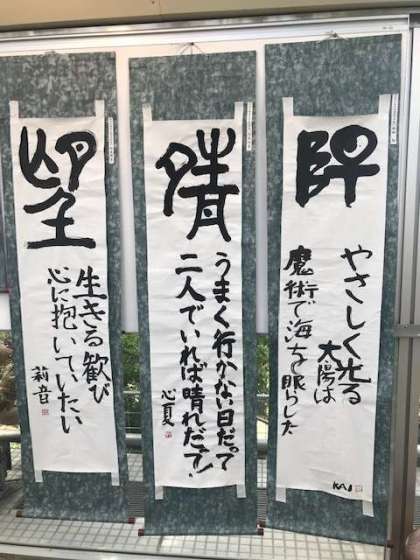 やさしく光る
太陽は
魔術で海を照らした
KAI
晴
うまく行かない日だって
二人でいれば晴れだって!
心夏
望
生きる歓び
心に抱いていたい
莉音